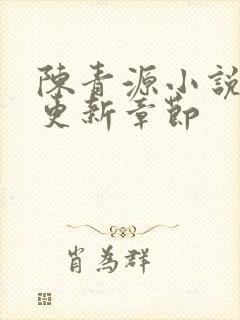 陳青源小說
更新章節
肖為群